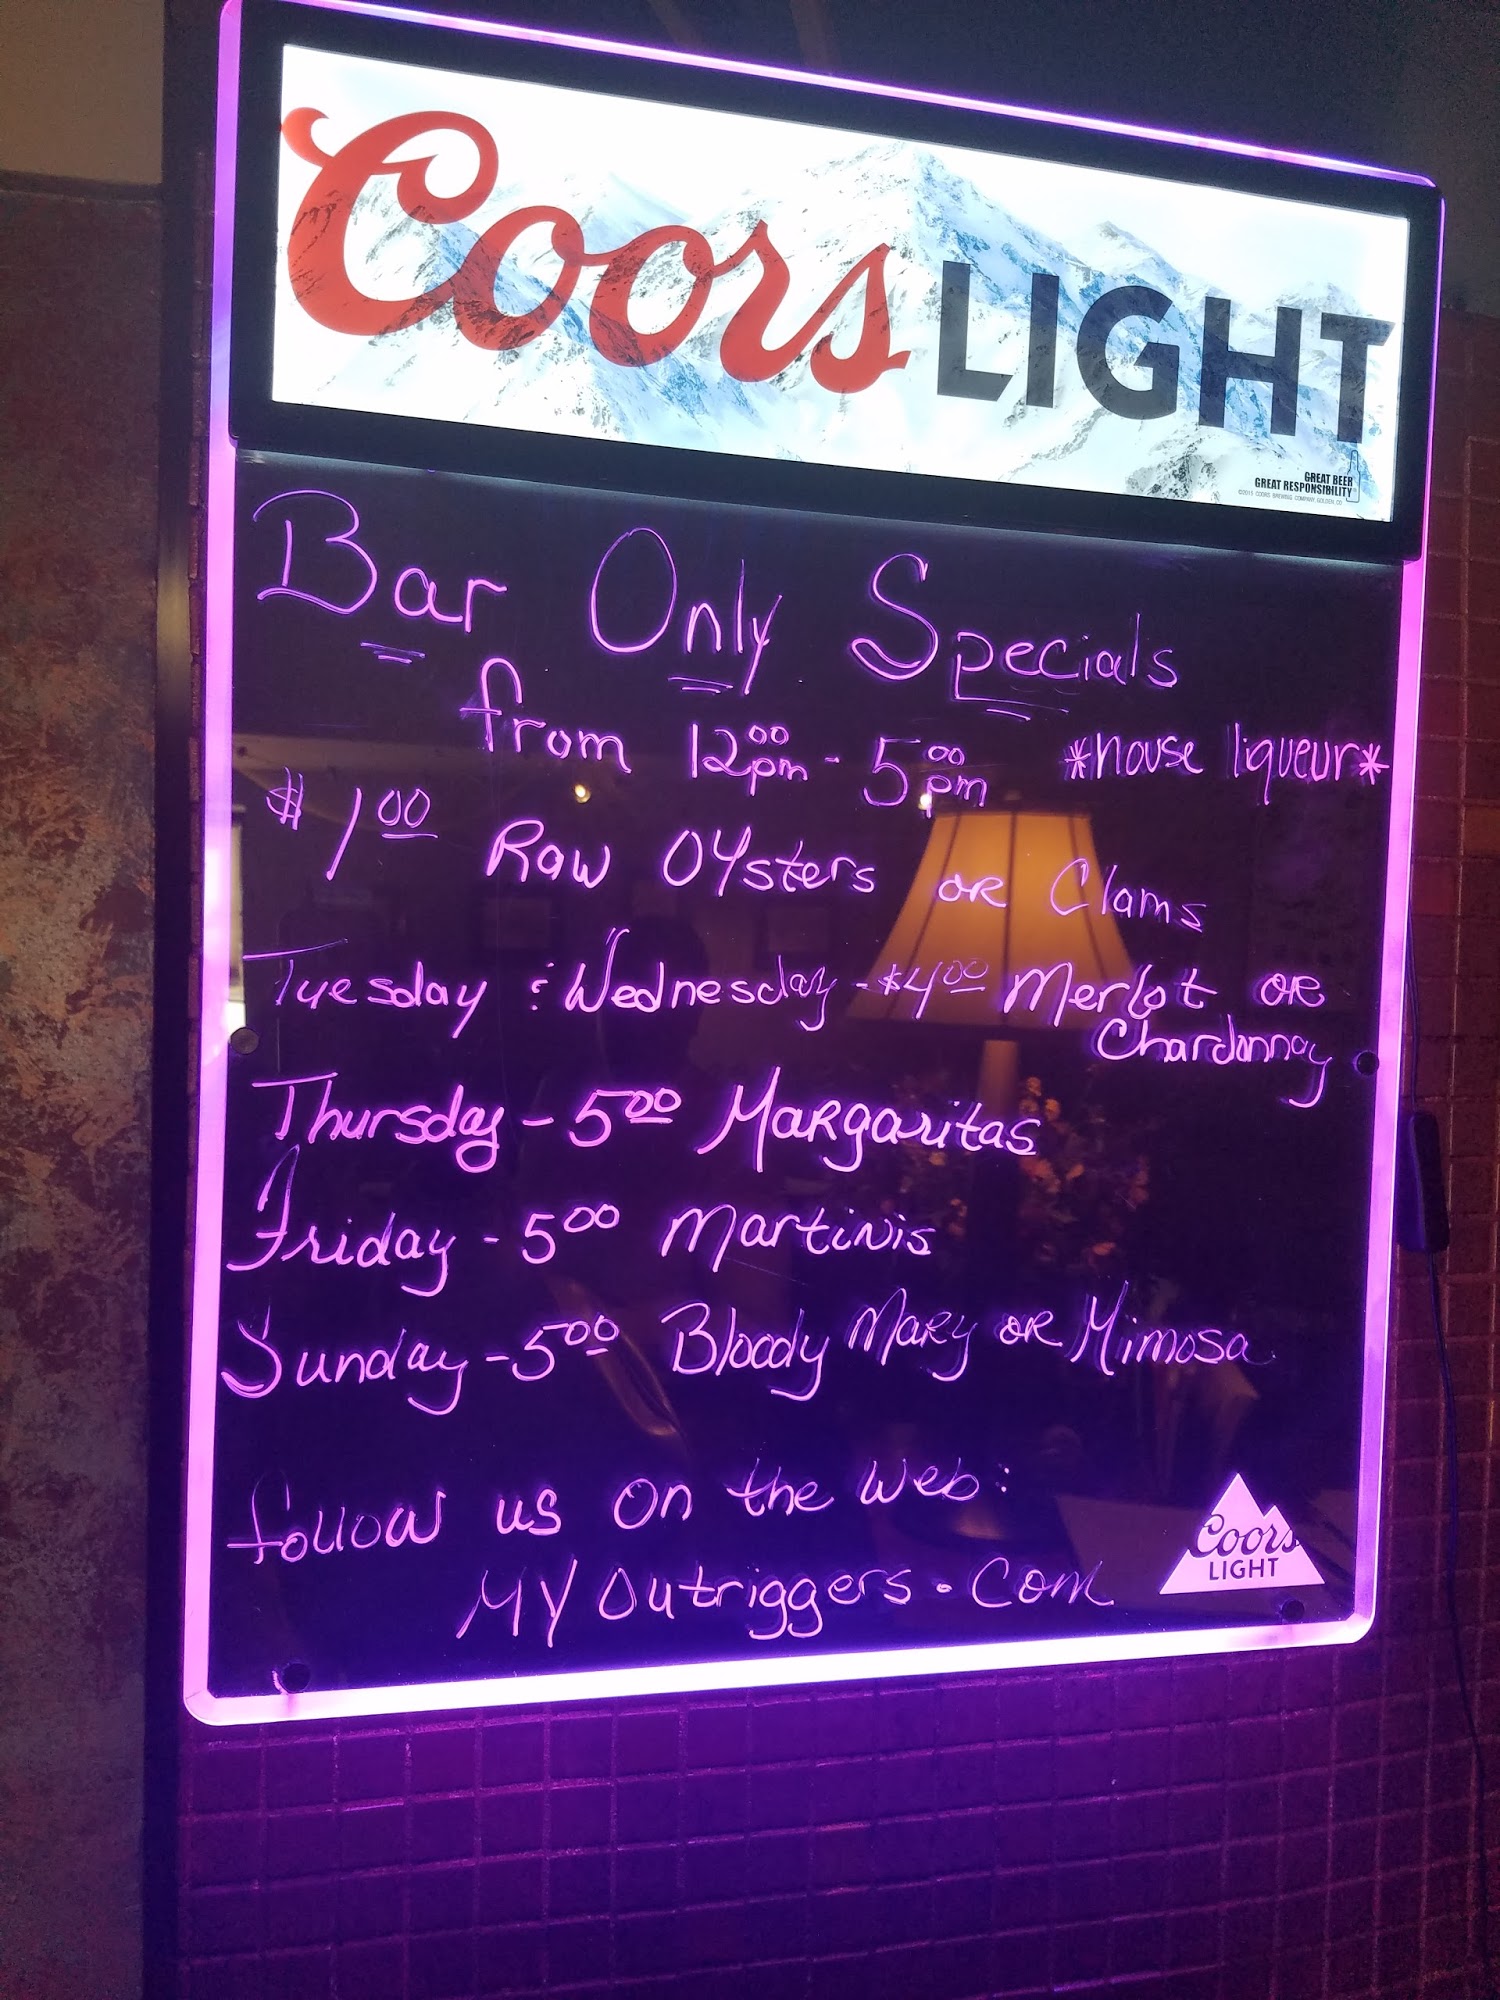 Coors LIGHT
GREAT BEER
GREAT RESPONSIBILITY
©2015 COORS BREWING COMPANY, GOLDEN, CO
Bar Only Specials
from 1200pm - 500pm *house liqueur*
$100 Raw Oysters or Clams
Tuesday & Wednesday - $400 Merlot or
Chardonnay
Thursday - 500 Margaritas
Friday - 500 Martinis
Sunday - 500 Bloody Mary or Mimosa
follow us on the web:
MYOutriggers.Com
Coors
LIGHT